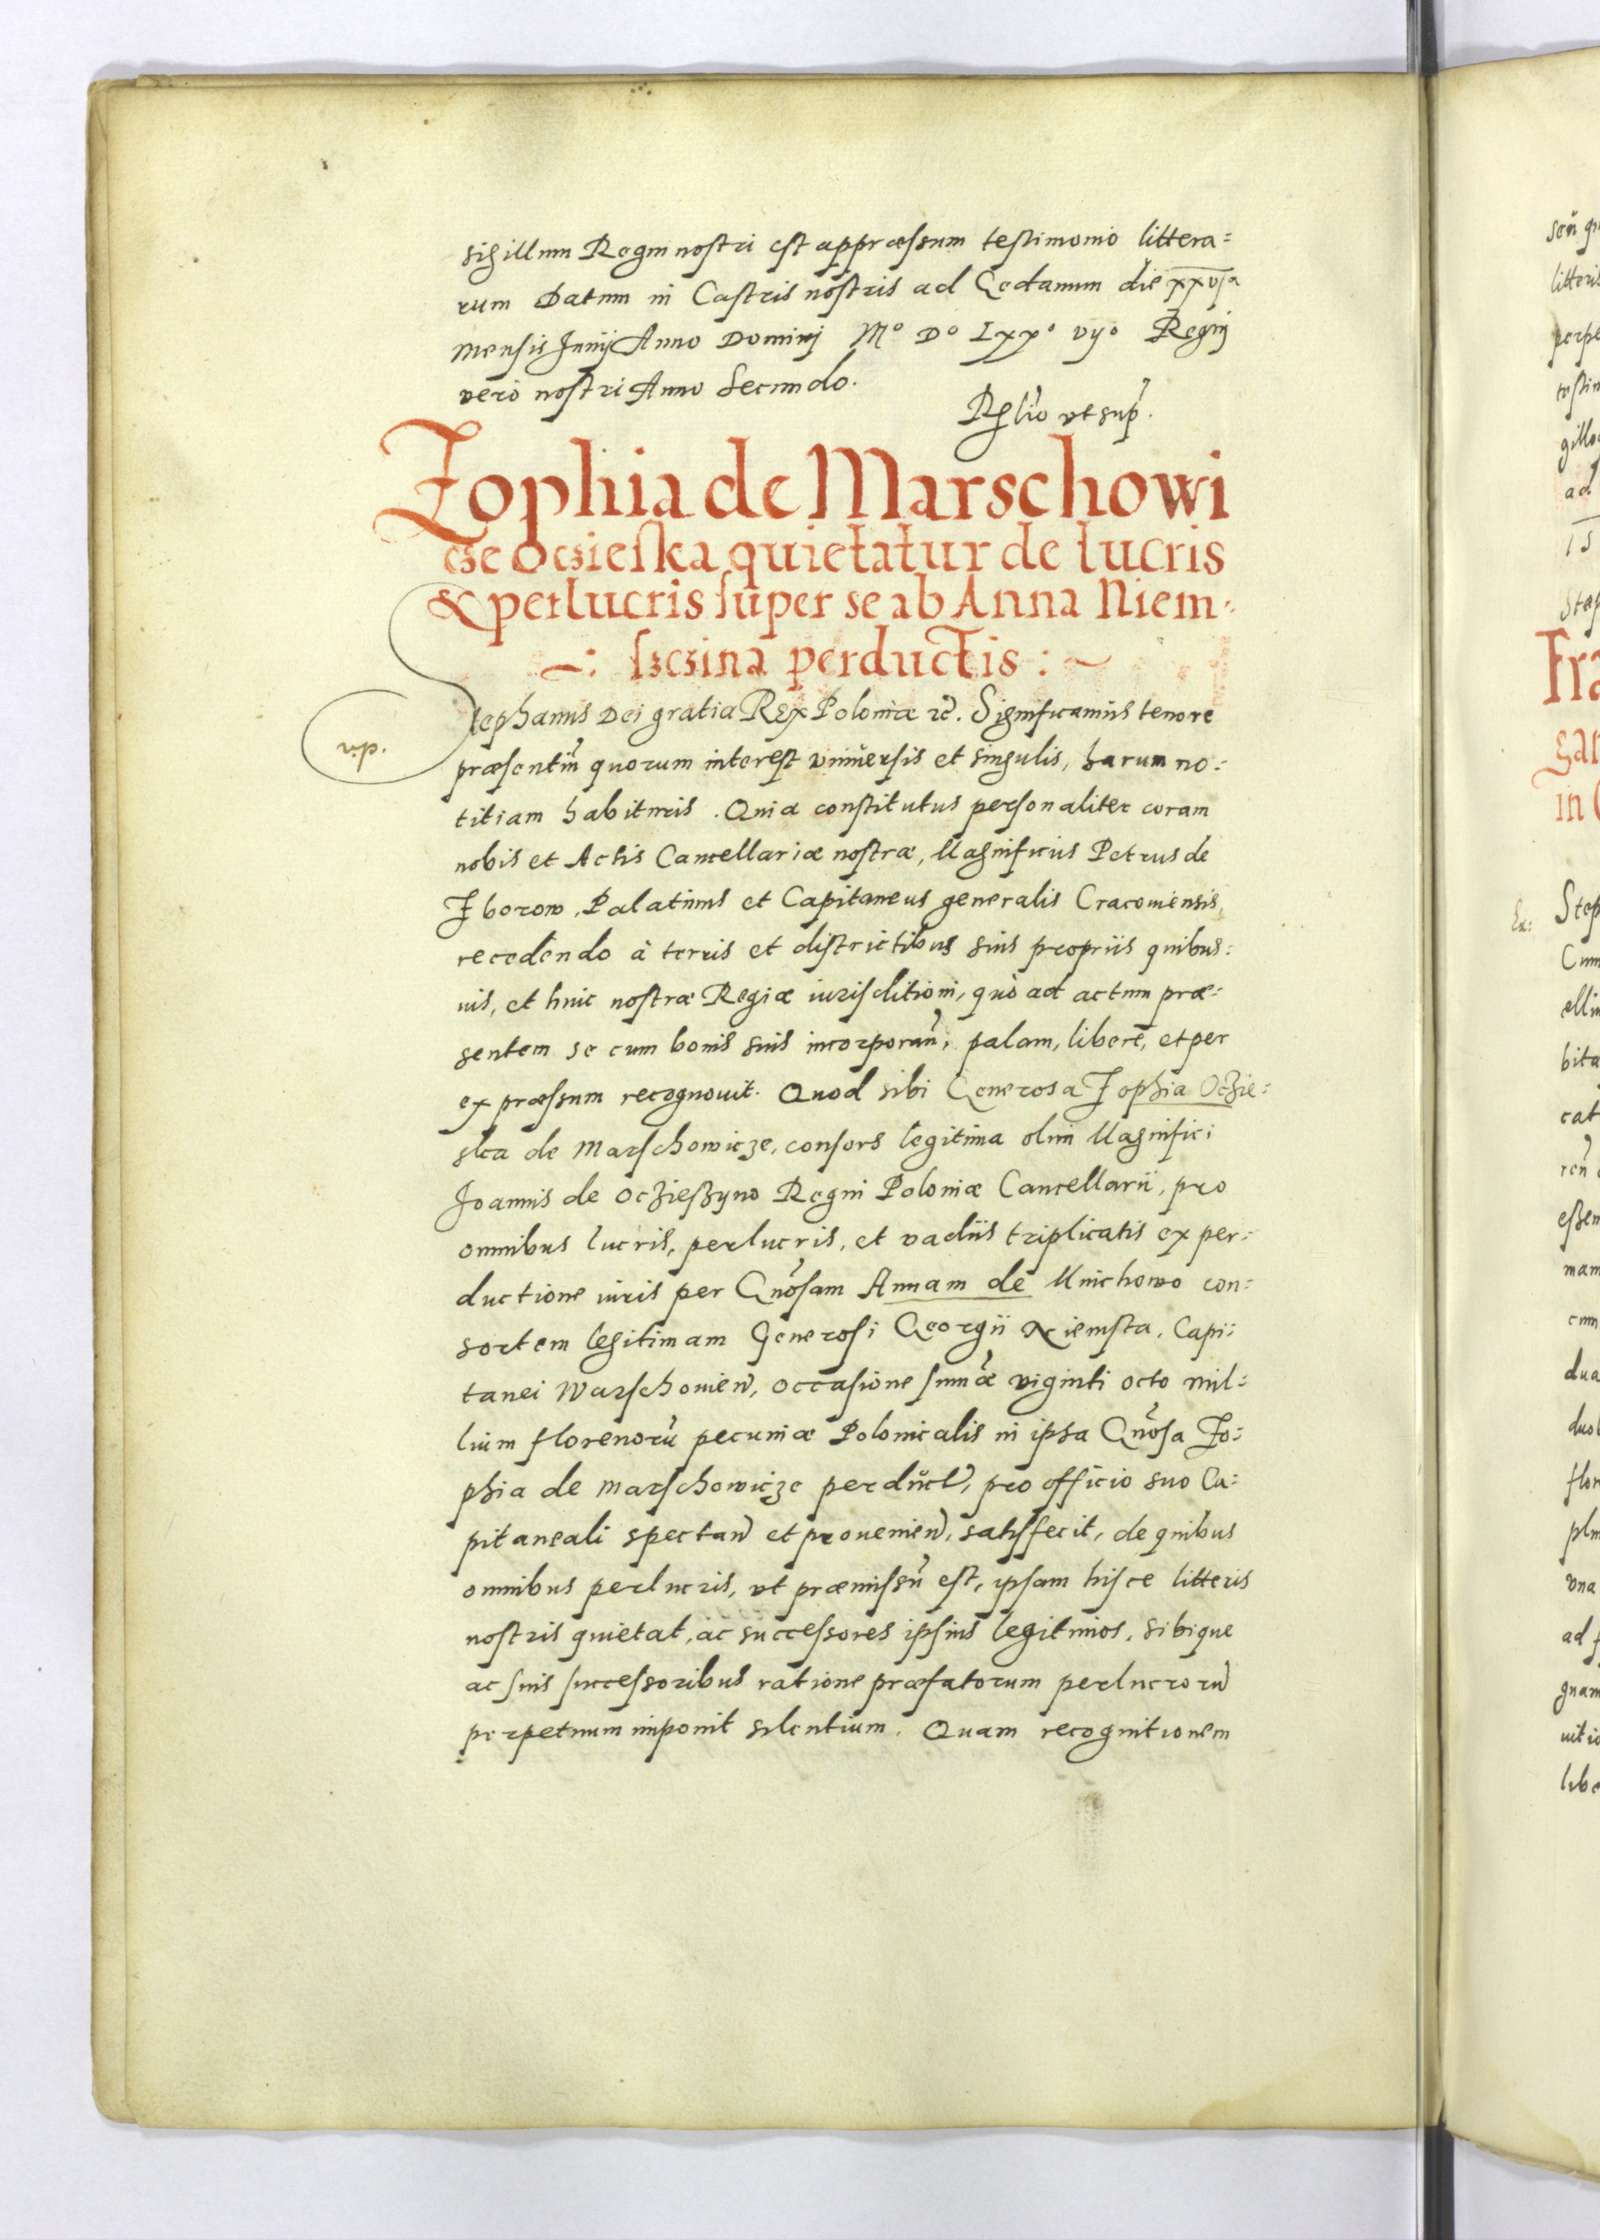 sigillum Regni nostri est appræssum testimonio littera=
rum Datum in Castris nostris ad Gedanum die xxvja
mensis Junij Anno Dominj Mo Do Lxxo vijo Regnj
vero nostri Anno Secundo.
Rllio vt supr.
Zophia de Marschowi
cze Oczieska quietatur de lucris
& perlucris super se ab Anna Niem=
szczina perductis :
Stephanus Dei gratia Rex Poloniæ etc. Significamus tenore
præsentium quorum interest vniuersis et singulis, harum no=
titiam habituris. Quia constitutus personaliter coram
nobis et Actis Cancellariæ nostræ, Magnificus Petrus de
Zborow, Palatinus et Capitaneus generalis Cracouiensis,
recedendo à terris et districtibus suis propriis quibus=
uis, et huic nostræ Regiæ iurisditioni, quò ad actum præ=
sentem se cum bonis suis incorporan, palam, liberè, et per
expræssum recognouit. Quod sibi Generosa Zophia Oczie=
ska de Marschowicze, consors legitima olim Magnifici
Joannis de Oczieszyno Regni Poloniæ Cancellarii, pro
omnibus lucris, perlucris, et vadiis triplicatis ex per=
ductione iuris per Gnosam Annam de Mnichowo con=
sortem legitimam Generosi Georgii Niemsta, Capi=
tanei Warschouien, occasione summæ viginti octo mil=
lium florenorum pecuniæ Polonicalis in ipsa Gnosa Zo=
phia de Marschowicze perduct, pro officio suo Ca=
pitaneali spectan et prouenien, satisfecit, de quibus
omnibus perlucris, vt præmissum est, ipsam hisce litteris
nostris quietat, ac successores ipsius legitimos, sibique
ac suis successoribus ratione præfatorum perlucrorum
perpetuum imponit silentium. Quam recognitionem